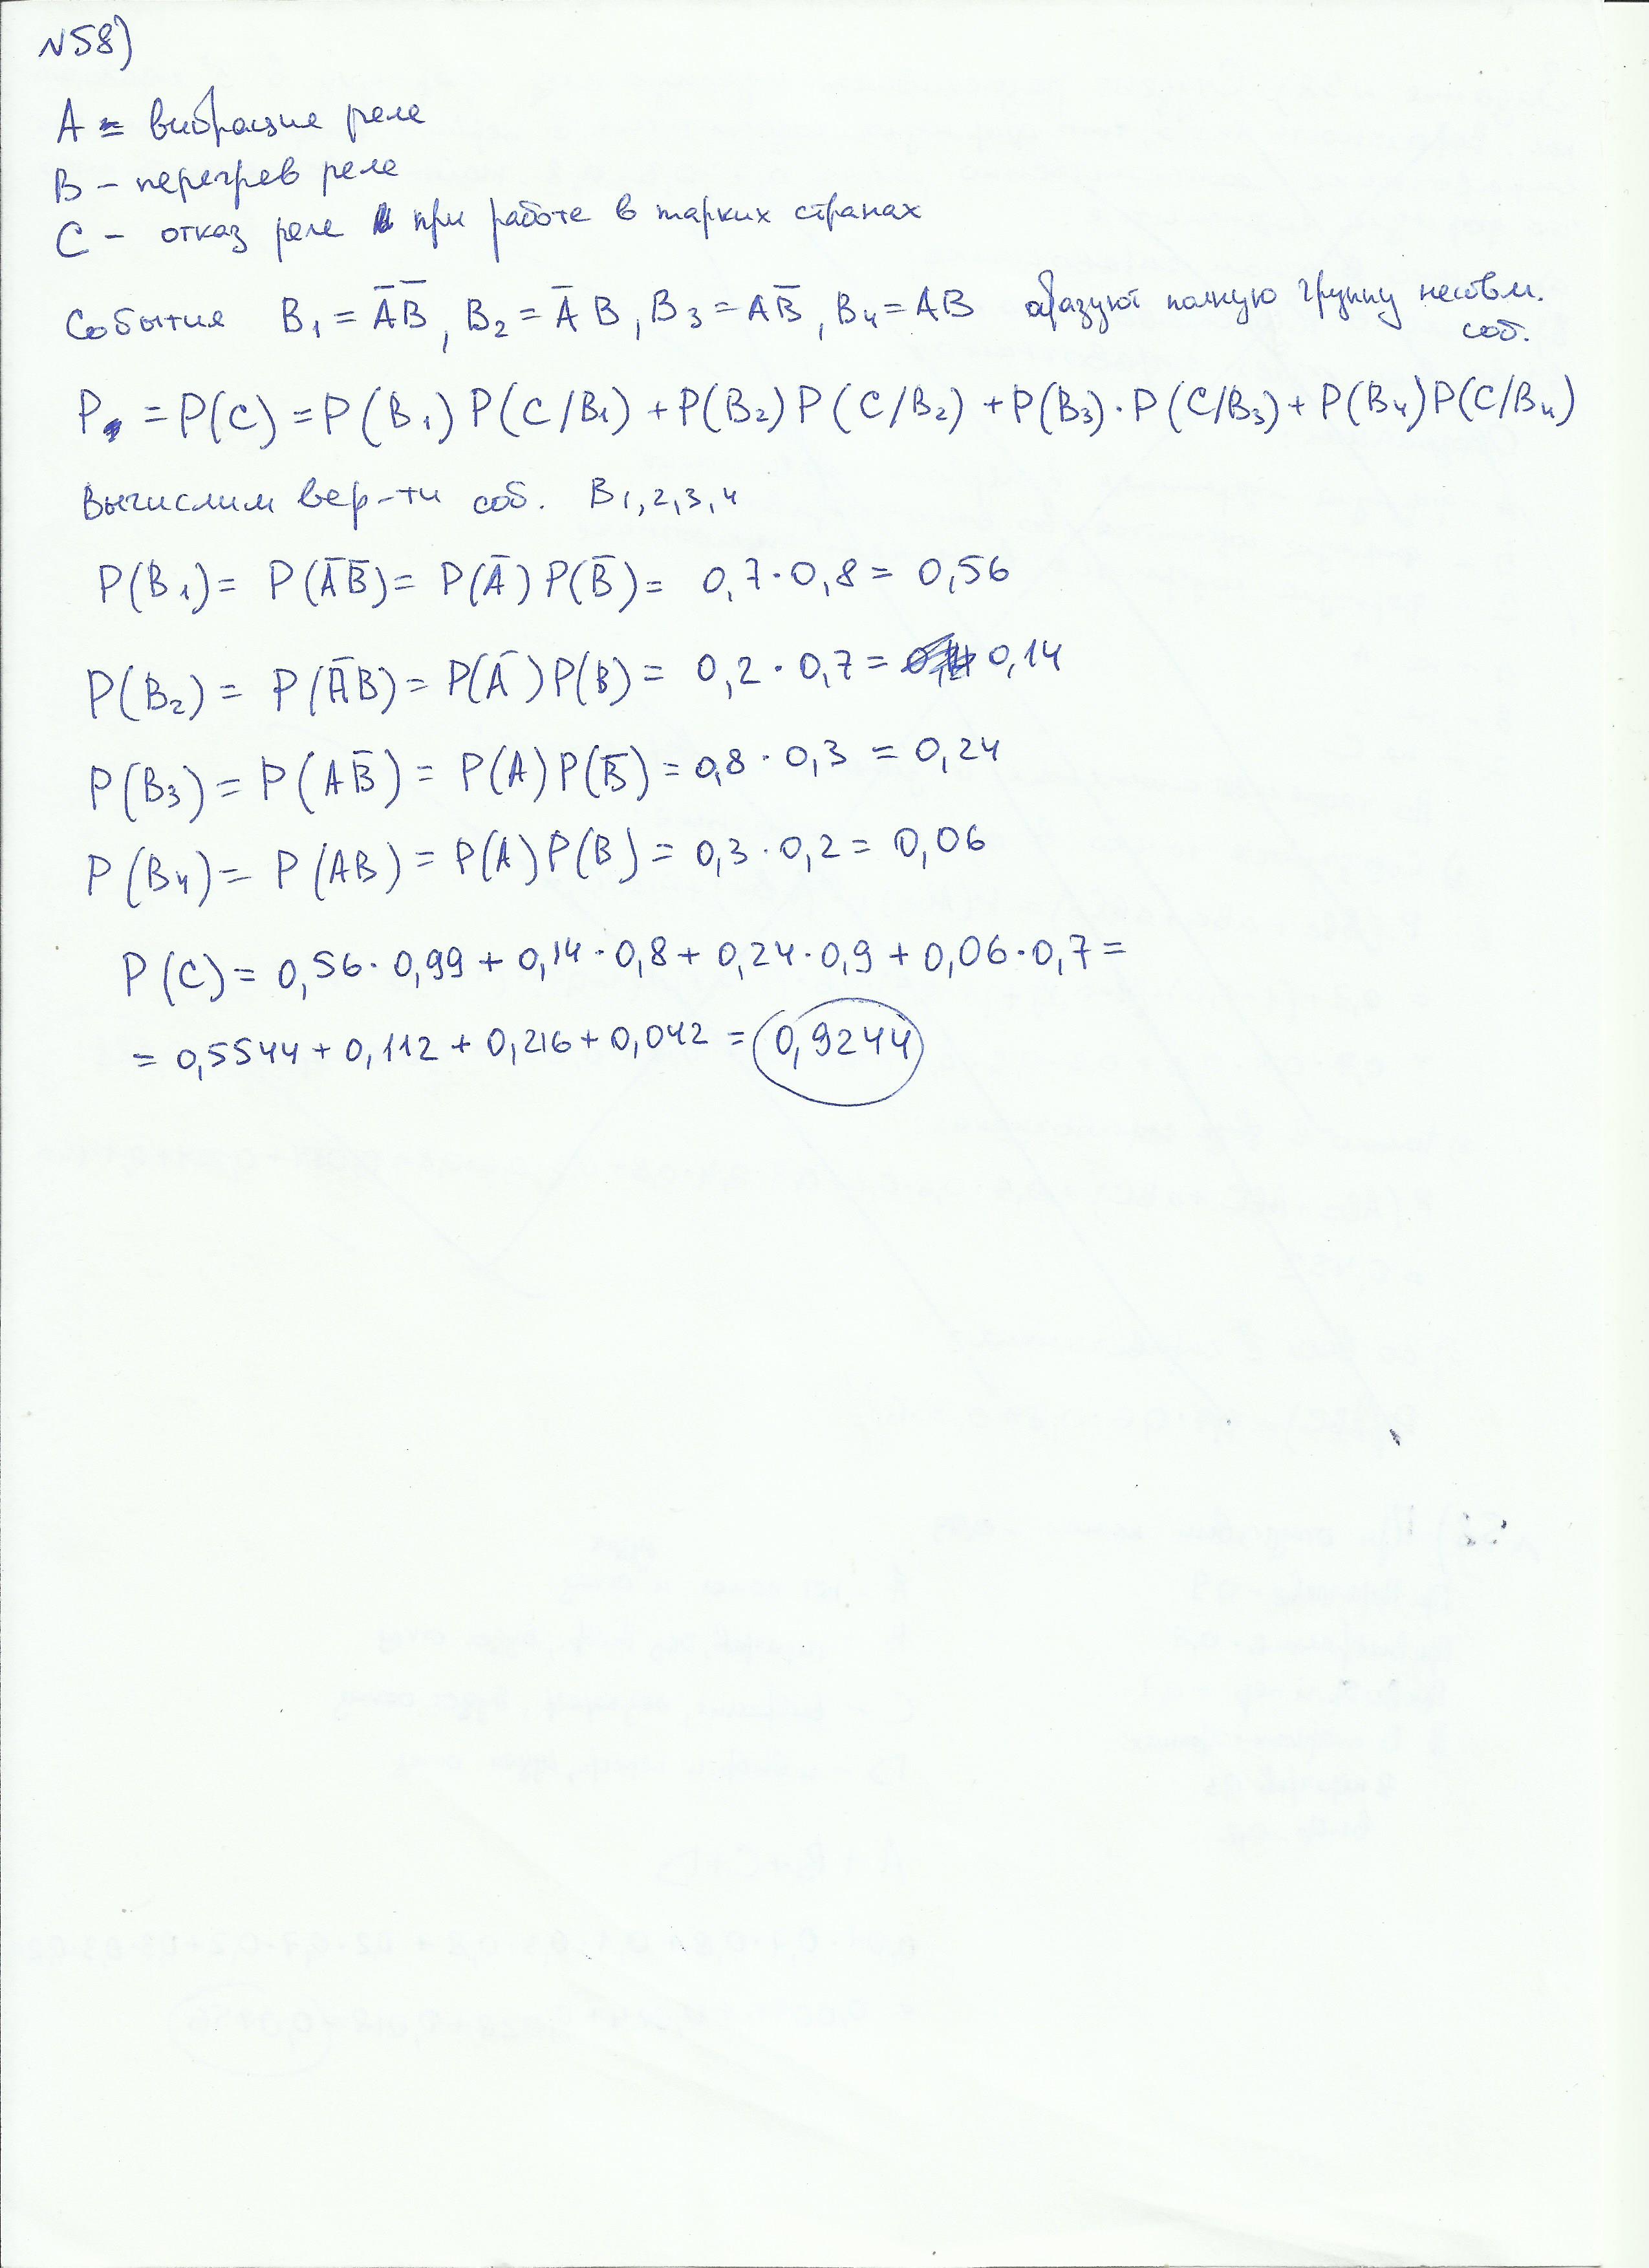 N58)
A = вибрацие реле
B – перегрев реле
C – отказ реле при работе в жарких странах
События B₁ = A̅B̅, B₂ = A̅B, B₃ = AB̅, B₄ = AB образуют полную группу несовм.
соб.
P = P(C) = P(B₁)P(C/B₁) + P(B₂)P(C/B₂) + P(B₃)·P(C/B₃) + P(B₄)P(C/B₄)
Вычислим вер-ти соб. B₁,₂,₃,₄
P(B₁) = P(A̅B̅) = P(A̅)P(B̅) = 0,7·0,8 = 0,56
P(B₂) = P(A̅B) = P(A̅)P(B) = 0,2·0,7 = 0,14
P(B₃) = P(AB̅) = P(A)P(B̅) = 0,8·0,3 = 0,24
P(B₄) = P(AB) = P(A)P(B) = 0,3·0,2 = 0,06
P(C) = 0,56·0,99 + 0,14·0,8 + 0,24·0,9 + 0,06·0,7 =
= 0,5544 + 0,112 + 0,216 + 0,042 = 0,9244